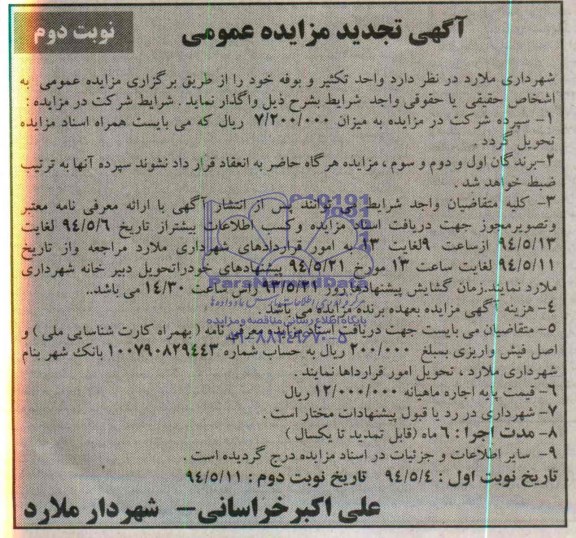 آگهی تجدید مزایده عمومی
نوبت دوم
شهرداری ملارد در نظر دارد واحد تکثیر و بوفه خود را از طریق برگزاری مزایده عمومی به
اشخاص حقیقی یا حقوقی واجد شرایط بشرح ذیل واگذار نماید . شرایط شرکت در مزایده :
۱- سپرده شرکت در مزایده به میزان ۷/۲۰۰/۰۰۰ ریال که می بایست همراه اسناد مزایده
تحویل گردد .
۲-برندگان اول و دوم و سوم ، مزایده هرگاه حاضر به انعقاد قرار داد نشوند سپرده آنها به ترتیب
ضبط خواهد شد .
۳- کلیه متقاضیان واجد شرایط می توانند پس از انتشار آگهی با ارائه معرفی نامه معتبر
وتصویرمجوز جهت دریافت اسناد مزایده وکسب اطلاعات بیشتراز تاریخ ۹٤/۵/٦ لغایت
۹٤/۵/۱۳ ازساعت ۹لغایت ۱۳ به امور قراردادهای شهرداری ملارد مراجعه واز تاریخ
۹٤/۵/۱۱ لغایت ساعت ۱۳ مورخ ۹٤/۵/۲۱ پیشنهادهای خودراتحویل دبیر خانه شهرداری
ملارد نمایند.زمان گشایش پیشنهادها روز ساعت ۱٤/۳۰ می باشد..
٤- هزینه آگهی مزایده بعهده برنده مزایده می باشد
۵- متقاضیان می بایست جهت دریافت اسناد مزایده معرفی نامه ( بهمراه کارت شناسایی ملی ) و
اصل فیش واریزی بمبلغ ۲۰۰/۰۰۰ ریال به حساب شماره ۱۰۰۷۹۰۸۲۹٤٤۳ بانک شهر بنام
شهرداری ملارد ، تحویل امور قراردادها نمایند .
٦- قیمت پایه اجاره ماهیانه ۱۲/۰۰۰/۰۰۰ ریال
۷- شهرداری در رد یا قبول پیشنهادات مختار است .
۸- مدت اجرا : ٦ ماه (قابل تمدید تا یکسال )
۹- سایر اطلاعات و جزئیات در اسناد مزایده درج گردیده است .
تاریخ نوبت اول : ۹٤/۵/٤ تاریخ نوبت دوم : ۹٤/۵/۱۱
علی اکبر خراسانی – شهردار ملارد
ParsNamadData
پایگاه اطلاع رسانی مناقصه و مزایده